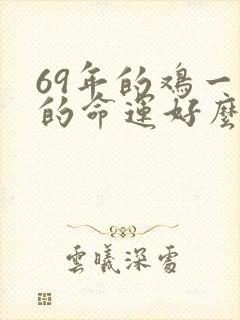 69年的鸡一
的命运好麼
雲曦深處